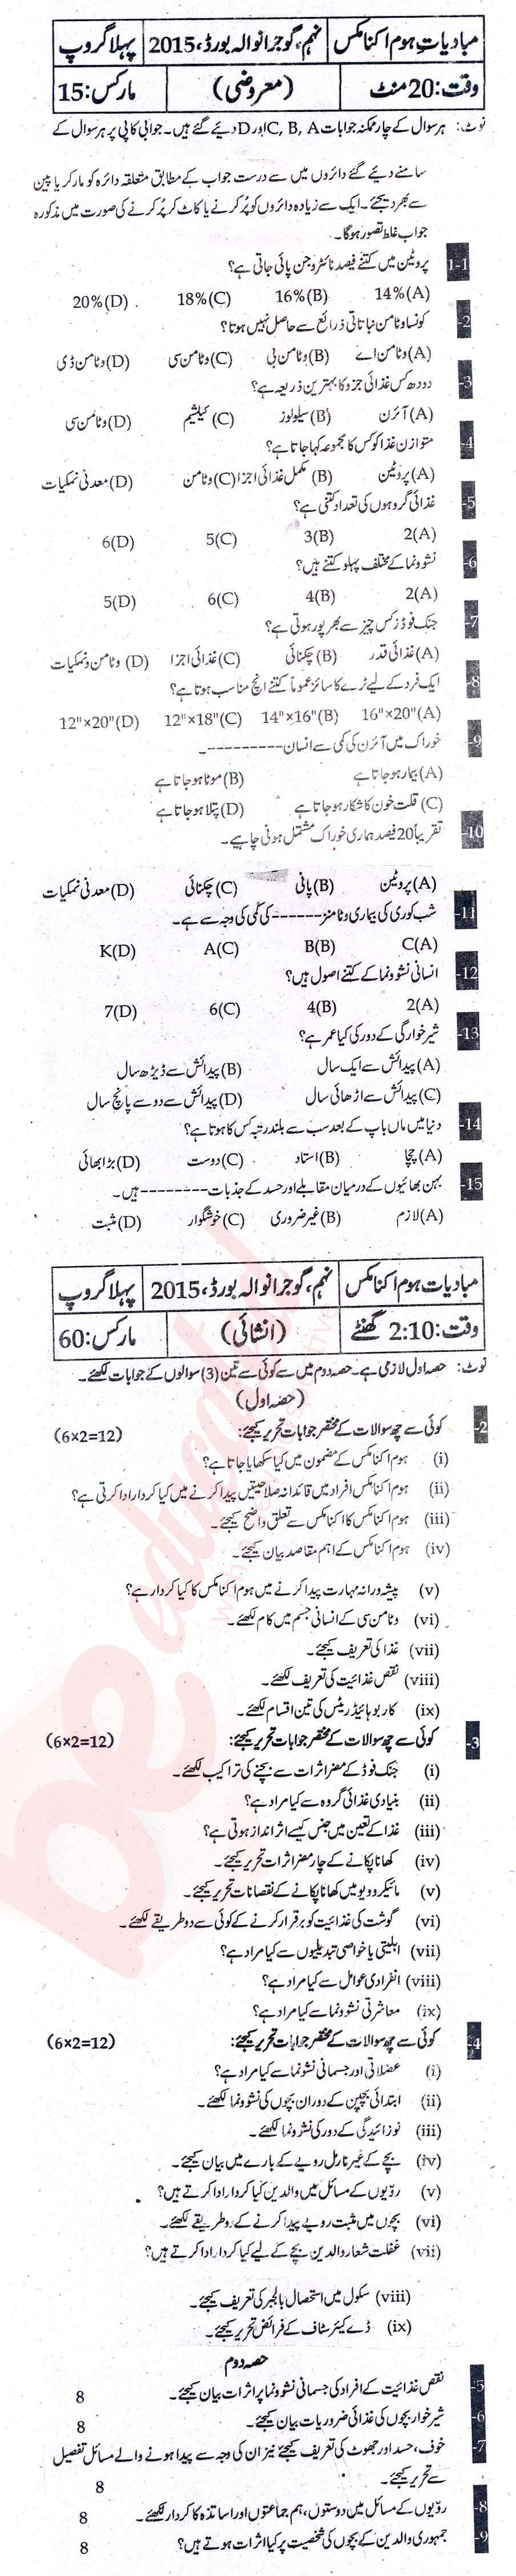 مبادیاتِ ہوم اکنامکس نہم، گوجرانوالہ بورڈ، 2015 پہلا گروپ
وقت: 20 منٹ (معروضی) مارکس: 15
نوٹ: ہر سوال کے چار ممکنہ جوابات C, B, A اور D دیئے گئے ہیں۔ جوابی کاپی پر ہر سوال کے
سامنے دیئے گئے دائروں میں سے درست جواب کے مطابق متعلقہ دائرہ کو مارکر یا پین
سے بھر دیجئے۔ ایک سے زیادہ دائروں کو پُر کرنے یا کاٹ کر پُر کرنے کی صورت میں مذکورہ
جواب غلط تصور ہوگا۔
1-1 پروٹین میں کتنے فیصد نائٹروجن پائی جاتی ہے؟
(A) 14% (B) 16% (C) 18% (D) 20%
2- کونسا وٹامن نباتاتی ذرائع سے حاصل نہیں ہوتا؟
(A) وٹامن اے (B) وٹامن بی (C) وٹامن سی (D) وٹامن ڈی
3- دودھ کس غذائی جزو کا بہترین ذریعہ ہے؟
(A) آئرن (B) سیلولوز (C) کیلشیم (D) وٹامن سی
4- متوازن غذا کو کس کا مجموعہ کہا جاتا ہے؟
(A) پروٹین (B) مکمل غذائی اجزا (C) وٹامن (D) معدنی نمکیات
5- غذائی گروہوں کی تعداد کتنی ہے؟
(A) 2 (B) 3 (C) 5 (D) 6
6- نشوونما کے مختلف پہلو کتنے ہیں؟
(A) 2 (B) 4 (C) 6 (D) 5
7- جنک فوڈز کس چیز سے بھرپور ہوتی ہے؟
(A) غذائی قدر (B) چکنائی (C) غذائی اجزا (D) وٹامن و نمکیات
8- ایک فرد کے لیے ٹرے کا سائز عموماً کتنے انچ مناسب ہوتا ہے؟
(A) 16"×20" (B) 14"×16" (C) 12"×18" (D) 12"×20"
9- خوراک میں آئرن کی کمی سے انسان ---------۔
(A) بیمار ہو جاتا ہے (B) موٹا ہو جاتا ہے
(C) قلت خون کا شکار ہو جاتا ہے (D) پتلا ہو جاتا ہے
10- تقریباً 20 فیصد ہماری خوراک مشتمل ہونی چاہیے۔
(A) پروٹین (B) پانی (C) چکنائی (D) معدنی نمکیات
11- شب کوری کی بیماری وٹامنز ------ کی کمی کی وجہ سے ہے۔
(A) C (B) B (C) A (D) K
12- انسانی نشوونما کے کتنے اصول ہیں؟
(A) 2 (B) 4 (C) 6 (D) 7
13- شیر خوارگی کے دور کی کیا عمر ہے؟
(A) پیدائش سے ایک سال (B) پیدائش سے ڈیڑھ سال
(C) پیدائش سے اڑھائی سال (D) پیدائش سے دو سے پانچ سال
14- دنیا میں ماں باپ کے بعد سب سے بلند رتبہ کس کا ہوتا ہے؟
(A) چچا (B) استاد (C) دوست (D) بڑا بھائی
15- بہن بھائیوں کے درمیان مقابلے اور حسد کے جذبات -------- ہیں۔
(A) لازم (B) غیر ضروری (C) خوشگوار (D) مثبت
مبادیات ہوم اکنامکس نہم، گوجرانوالہ بورڈ، 2015 پہلا گروپ
وقت: 2:10 گھنٹے (انشائی) مارکس: 60
نوٹ: حصہ اول لازمی ہے۔ حصہ دوم میں سے کوئی سے تین (3) سوالوں کے جوابات لکھئے۔
(حصہ اول)
2- کوئی سے چھ سوالات کے مختصر جوابات تحریر کیجئے: (6×2=12)
(i) ہوم اکنامکس کے مضمون میں کیا سکھایا جاتا ہے؟
(ii) ہوم اکنامکس افراد میں قائدانہ صلاحیتیں پیدا کرنے میں کیا کردار ادا کرتی ہے؟
(iii) ہوم اکنامکس کا اکنامکس سے تعلق واضح کیجئے۔
(iv) ہوم اکنامکس کے اہم مقاصد بیان کیجئے۔
(v) پیشہ ورانہ مہارت پیدا کرنے میں ہوم اکنامکس کا کیا کردار ہے؟
(vi) وٹامن سی کے انسانی جسم میں کام لکھئے۔
(vii) غذا کی تعریف کیجئے۔
(viii) نقص غذائیت کی تعریف لکھئے۔
(ix) کاربوہائیڈریٹس کی تین اقسام لکھئے۔
3- کوئی سے چھ سوالات کے مختصر جوابات تحریر کیجئے: (6×2=12)
(i) جنک فوڈ کے مضر اثرات سے بچنے کی تراکیب لکھئے۔
(ii) بنیادی غذائی گروہ سے کیا مراد ہے؟
(iii) غذا کے تعین میں جنس کیسے اثر انداز ہوتی ہے؟
(iv) کھانا پکانے کے چار مضر اثرات تحریر کیجئے۔
(v) مائیکروویو میں کھانا پکانے کے نقصانات تحریر کیجئے۔
(vi) گوشت کی غذائیت کو برقرار کرنے کے کوئی سے دو طریقے لکھئے۔
(vii) اہلیتی یا خواصی تبدیلیوں سے کیا مراد ہے؟
(viii) انفرادی عوامل سے کیا مراد ہے؟
(ix) معاشرتی نشوونما سے کیا مراد ہے؟
4- کوئی سے چھ سوالات کے مختصر جوابات تحریر کیجئے: (6×2=12)
(i) عضلاتی اور جسمانی نشوونما سے کیا مراد ہے؟
(ii) ابتدائی بچپن کے دوران بچوں کی نشوونما لکھئے۔
(iii) نوزائیدگی کے دور کی نشوونما لکھئے۔
(iv) بچے کے غیر نارمل رویے کے بارے میں بیان کیجئے۔
(v) رویوں کے مسائل میں والدین کیا کردار ادا کرتے ہیں؟
(vi) بچوں میں مثبت رویے پیدا کرنے کے دو طریقے لکھئے۔
(vii) غفلت شعار والدین بچے کے لیے کیا کردار ادا کرتے ہیں؟
(viii) سکول میں استحصال بالجبر کی تعریف کیجئے۔
(ix) ڈے کیئر سٹاف کے فرائض تحریر کیجئے۔
حصہ دوم
5- نقص غذائیت کے افراد کی جسمانی نشوونما پر اثرات بیان کیجئے۔ 8
6- شیر خوار بچوں کی غذائی ضروریات بیان کیجئے۔ 8
7- خوف، حسد اور جھوٹ کی تعریف کیجئے نیز ان کی وجہ سے پیدا ہونے والے مسائل تفصیل
سے تحریر کیجئے۔ 8
8- رویوں کے مسائل میں دوستوں، ہم جماعتوں اور اساتذہ کا کردار لکھئے۔ 8
9- جمہوری والدین کے بچوں کی شخصیت پر کیا اثرات ہوتے ہیں؟ 8